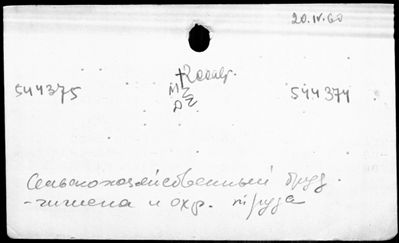 20.IV.60
544375
544374
Сельскохозяйственный труд.
-гигиена и охр. труда